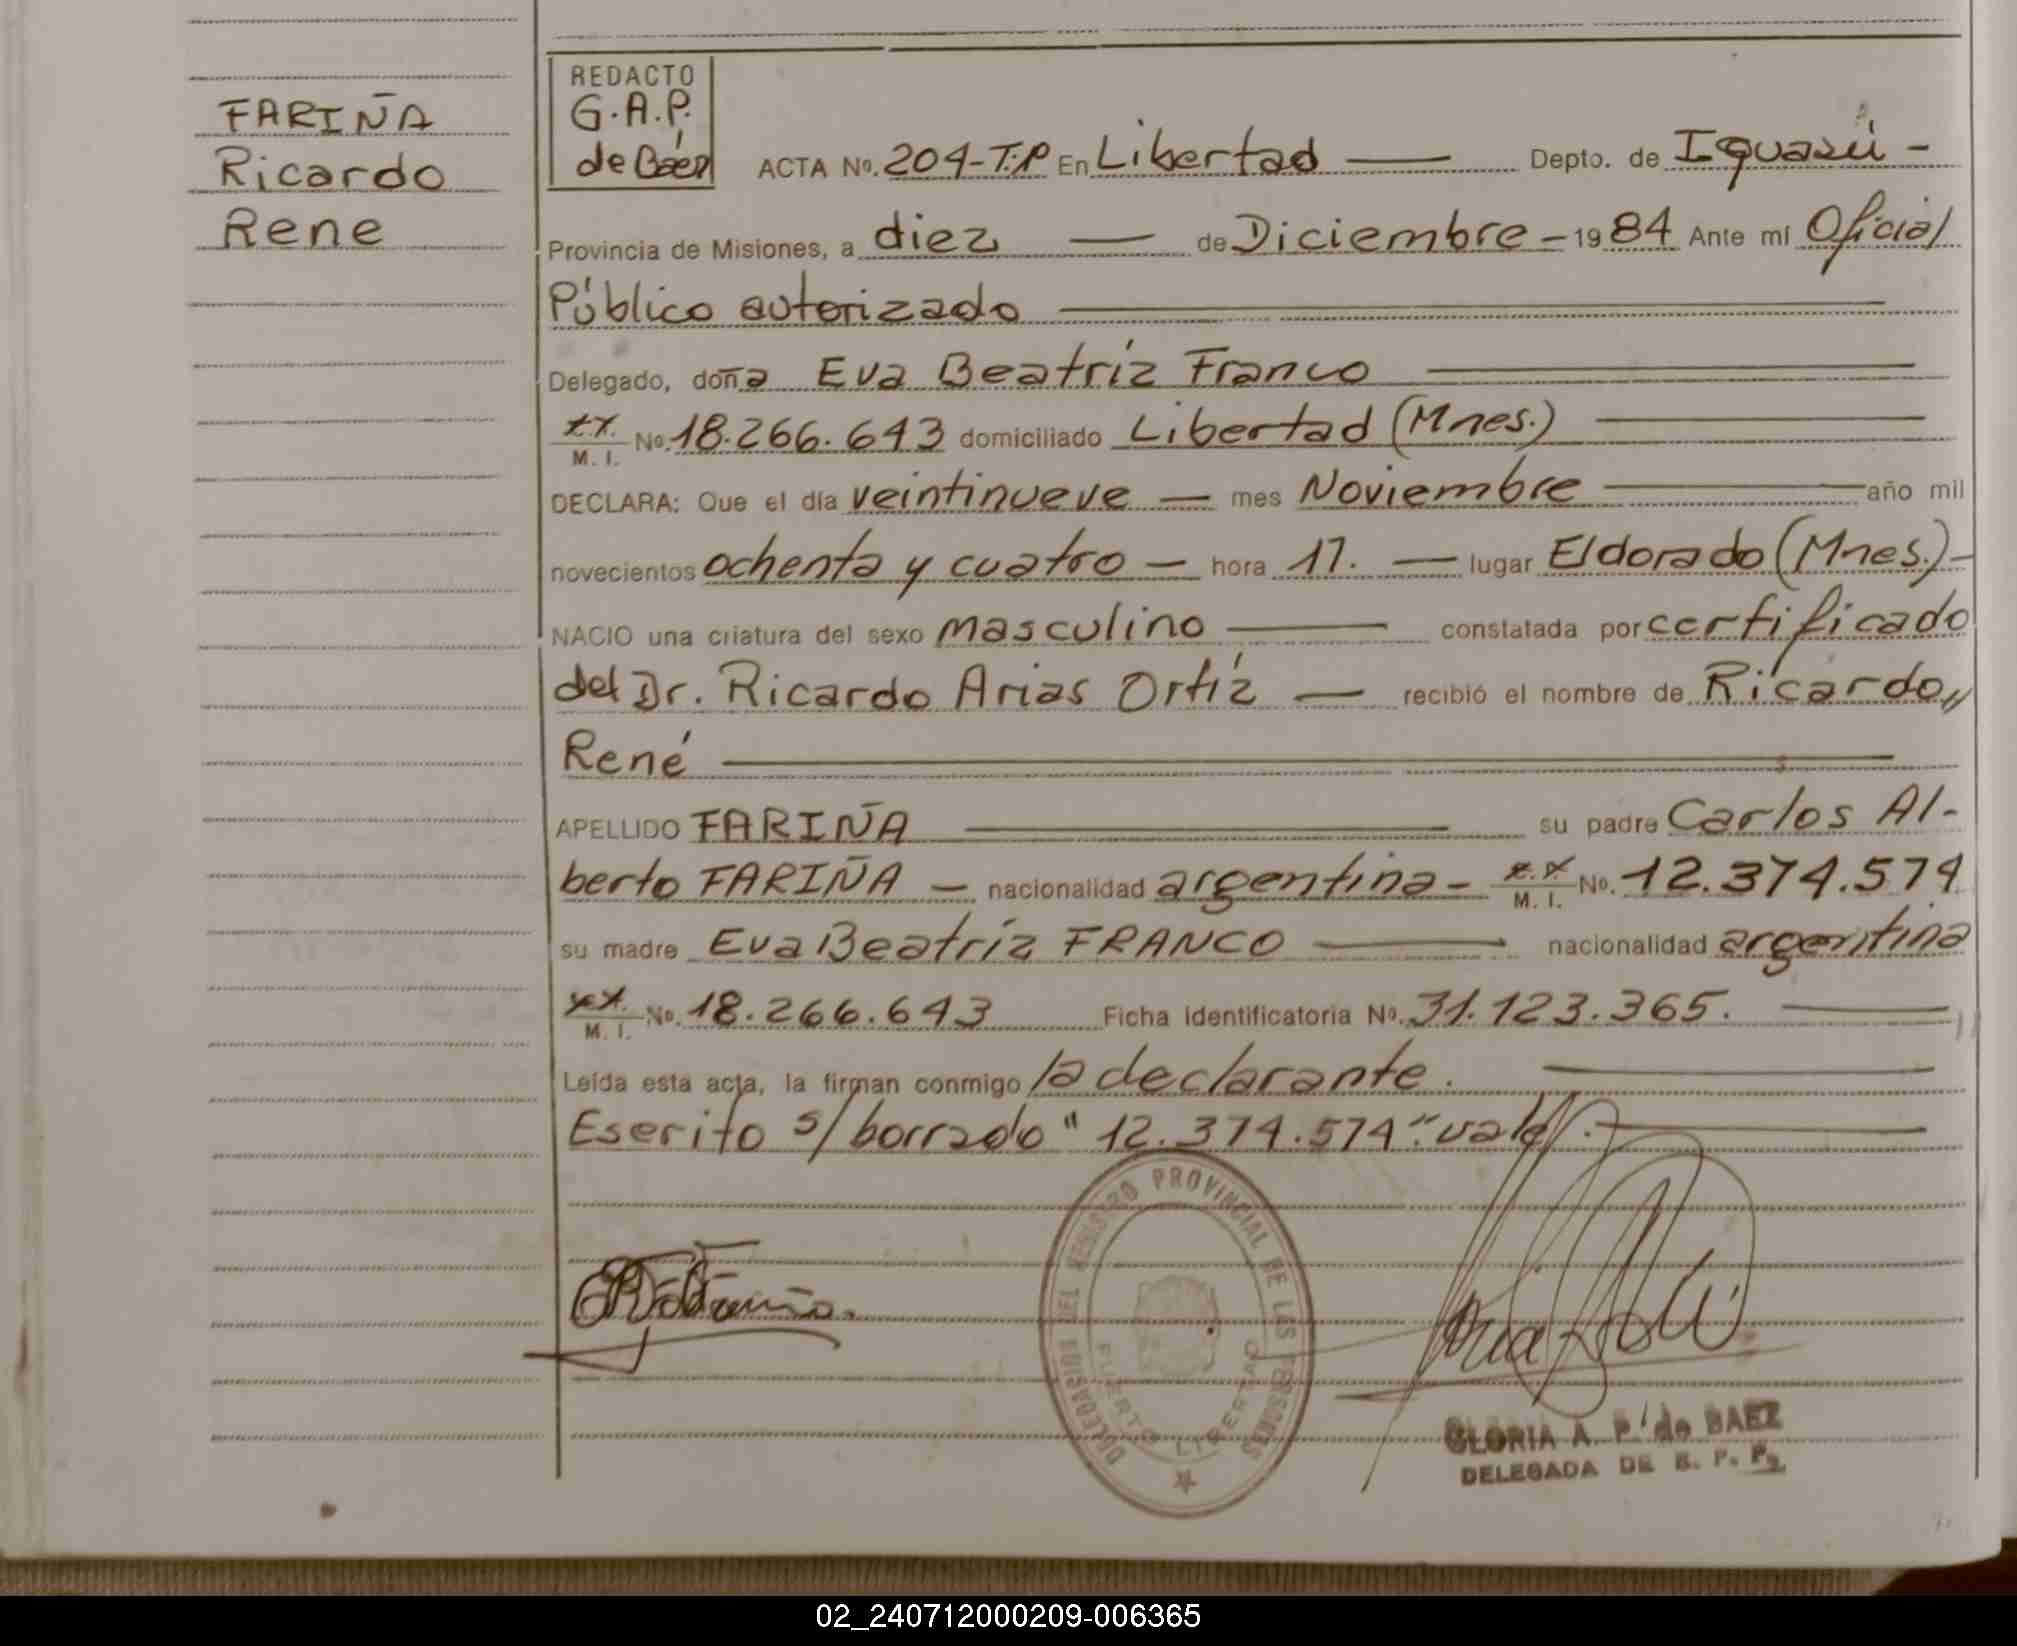 FARIÑA
Ricardo
Rene
REDACTO
G.A.P.
de Báez
ACTA Nº. 204-T:P En Libertad — Depto. de Iguazú -
Provincia de Misiones, a diez — de Diciembre - 1984 Ante mí Oficial
Público autorizado
Delegado, doña Eva Beatríz Franco
M. I. Nº 18.266.643 domiciliado Libertad (Mnes.)
DECLARA: Que el día veintinueve — mes Noviembre — año mil
novecientos ochenta y cuatro — hora 17. — lugar Eldorado (Mnes.) -
NACIO una criatura del sexo masculino — constatada por certificado
del Dr. Ricardo Arias Ortíz — recibió el nombre de Ricardo,,
René
APELLIDO FARIÑA — su padre Carlos Al-
berto FARIÑA — nacionalidad argentina - M. I. Nº. 12.374.574
su madre Eva Beatríz FRANCO — nacionalidad argentina
M. I. Nº. 18.266.643 Ficha identificatoria Nº. 31.123.365.
Leída esta acta, la firman conmigo la declarante.
Escrito s/borrado "12.374.574" vale.
DELEGACION DEL REGISTRO PROVINCIAL DE LAS PERSONAS
PUERTO LIBERTAD
GLORIA A. P. de BAEZ
DELEGADA DE R. P. P.
02_240712000209-006365